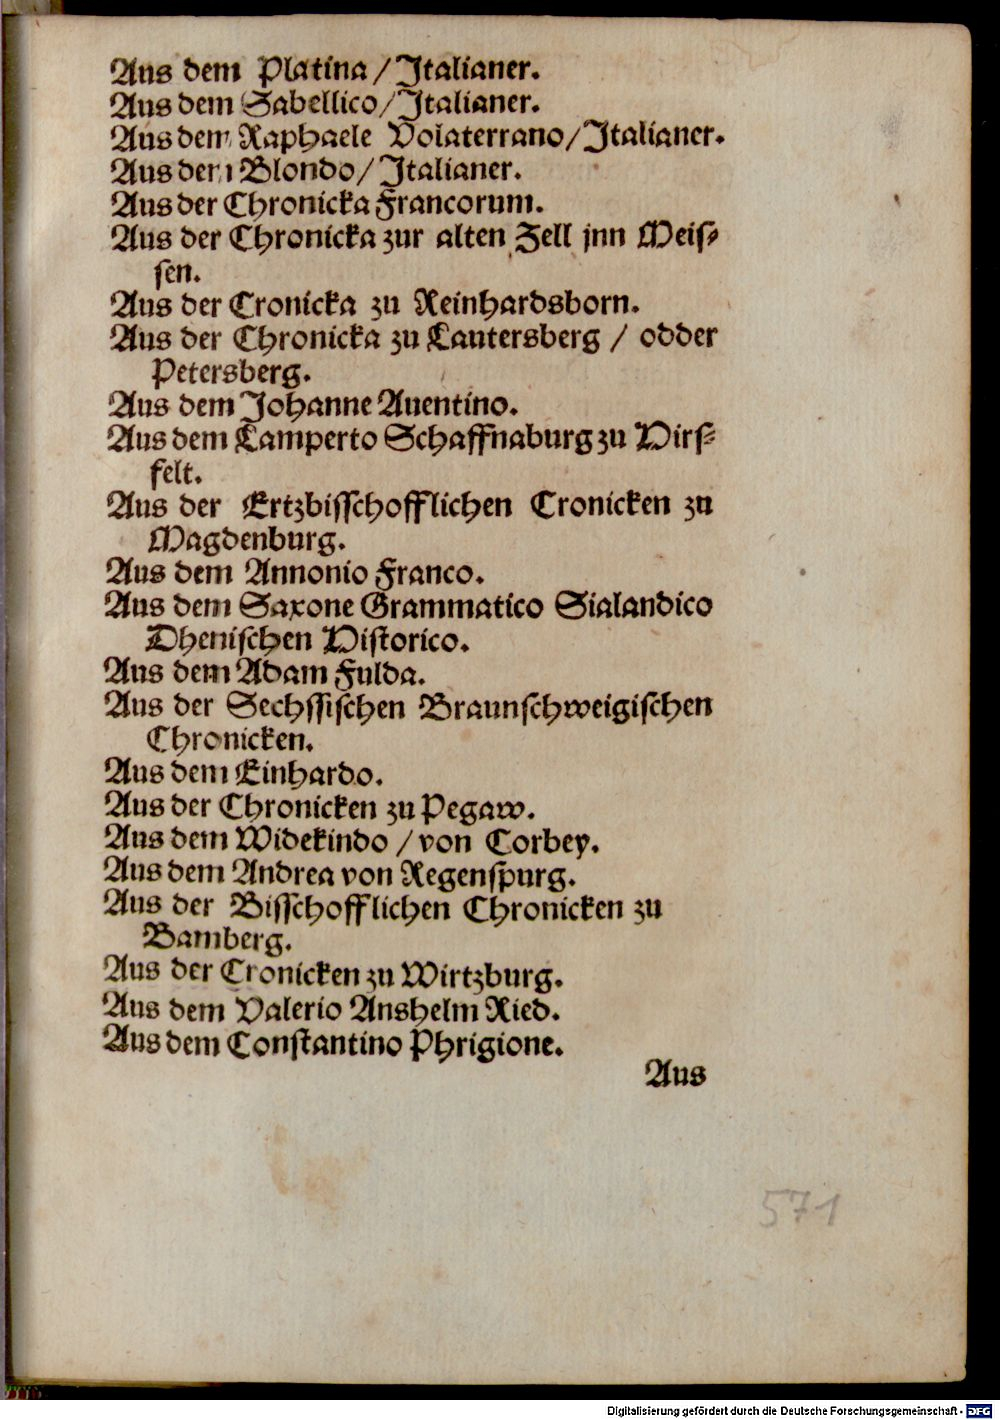 Aus dem Platina / Jtalianer.
Aus dem Sabellico / Jtalianer.
Aus dem Raphaele Volaterrano / Jtalianer.
Aus dem Blondo / Jtalianer.
Aus der Chronicka Francorum.
Aus der Chronicka zur alten Zell jnn Meis-
sen.
Aus der Cronicka zu Reinhardsborn.
Aus der Chronicka zu Lautersberg / odder
Petersberg.
Aus dem Johanne Auentino.
Aus dem Lamperto Schaffnaburg zu Hirs-
felt.
Aus der Ertzbisschofflichen Cronicken zu
Magdenburg.
Aus dem Annonio Franco.
Aus dem Saxone Grammatico Sialandico
Dhenischen Historico.
Aus dem Adam Fulda.
Aus der Sechssischen Braunschweigischen
Chronicken.
Aus dem Einhardo.
Aus der Chronicken zu Pegaw.
Aus dem Widekindo / von Corbey.
Aus dem Andrea von Regenspurg.
Aus der Bisschofflichen Chronicken zu
Bamberg.
Aus der Cronicken zu Wirtzburg.
Aus dem Valerio Anshelm Ried.
Aus dem Constantino Phrigione.
Aus
571
Digitalisierung gefördert durch die Deutsche Forschungsgemeinschaft - DFG